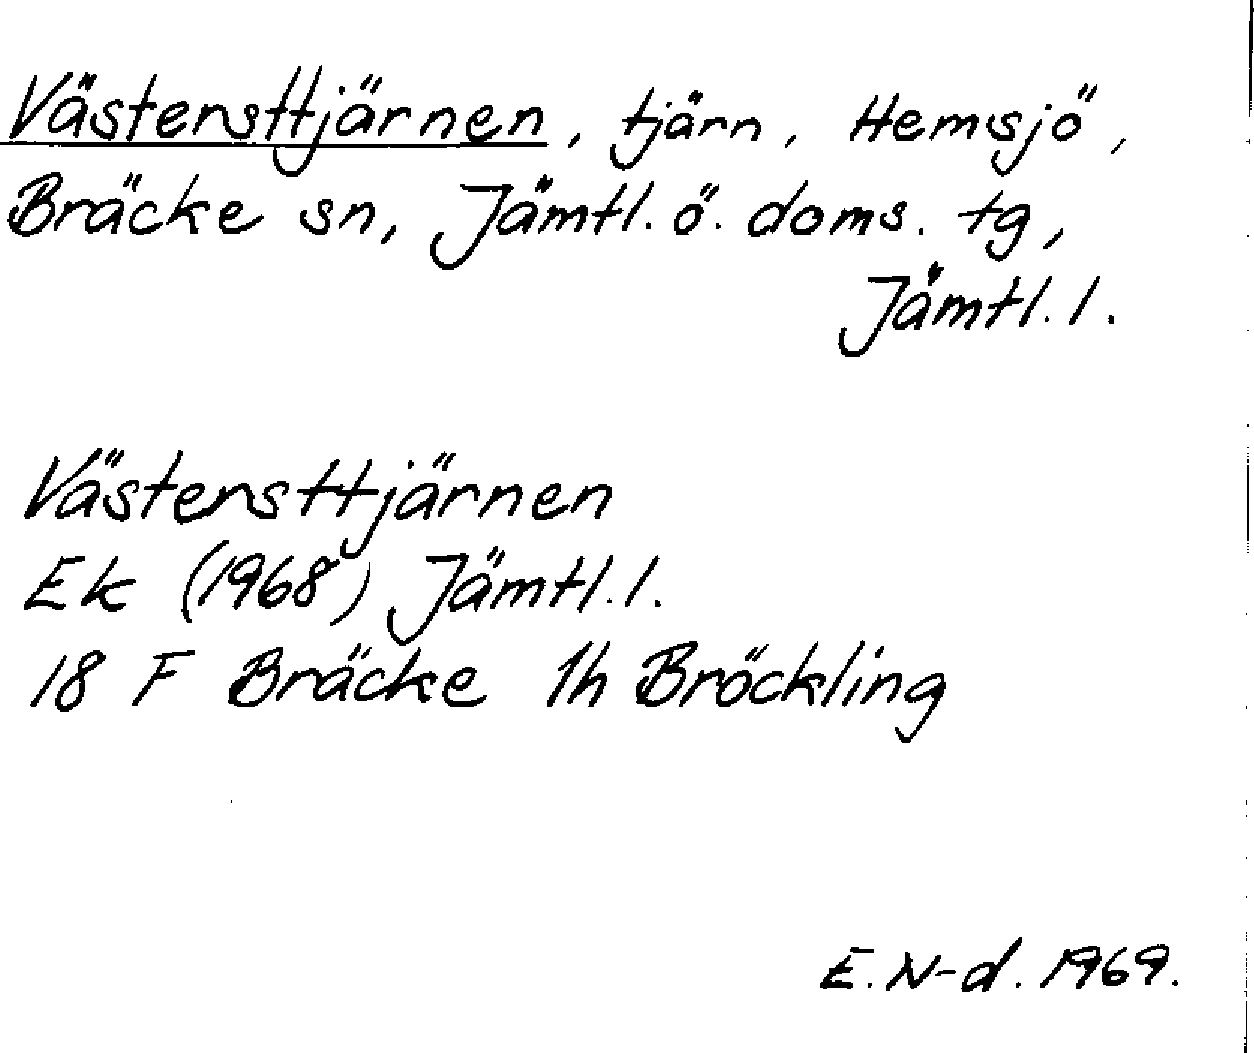 Västersttjärnen, tjärn, Hemsjö,
Bräcke sn, Jämtl. ö. doms. tg,
Jämtl. l.
Västersttjärnen
Ek (1968) Jämtl. l.
18 F Bräcke 1h Bröckling
E. N-d. 1969.